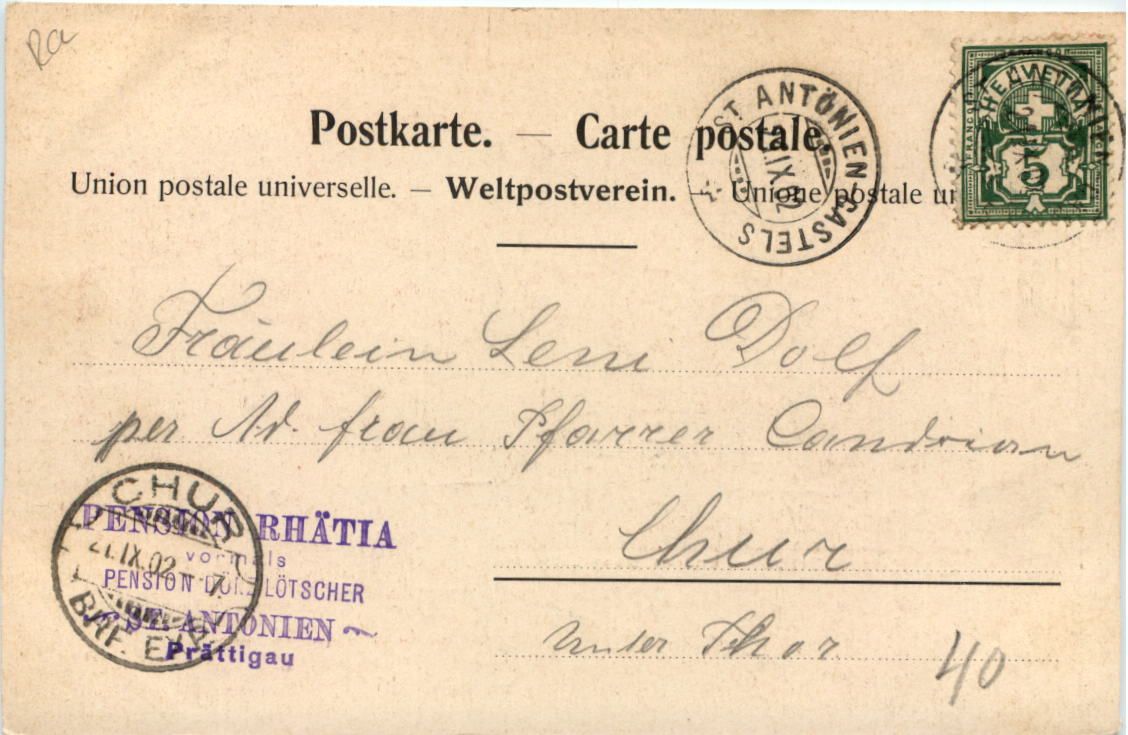 Ra
Postkarte. — Carte postale.
Union postale universelle. — Weltpostverein. — Unione postale
ST ANTÖNIEN CASTELS
IX 02
HELVETIA
FRANCO
5
Fräulein Leni Dolf
per Ad. frau Pfarrer Candrian
Chur
unter Thor
40
CHUR
21.IX.02 7
BRF. EXP.
PENSION RHÄTIA
vormals
PENSION LÖTSCHER
ST. ANTONIEN
Prättigau